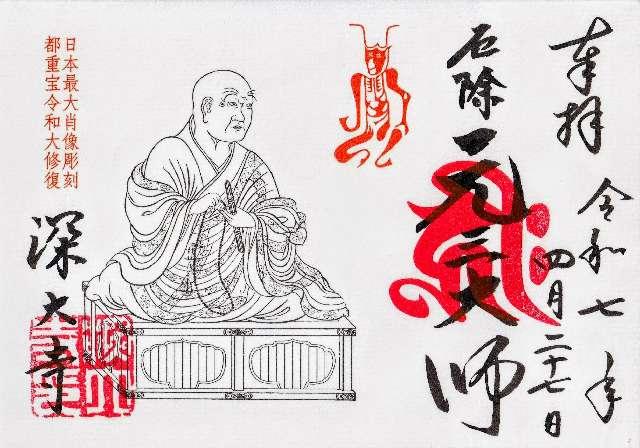 奉拝
令和七年
四月二十七日
厄除元三大師
日本最大肖像彫刻
都重宝令和大修復
深大寺